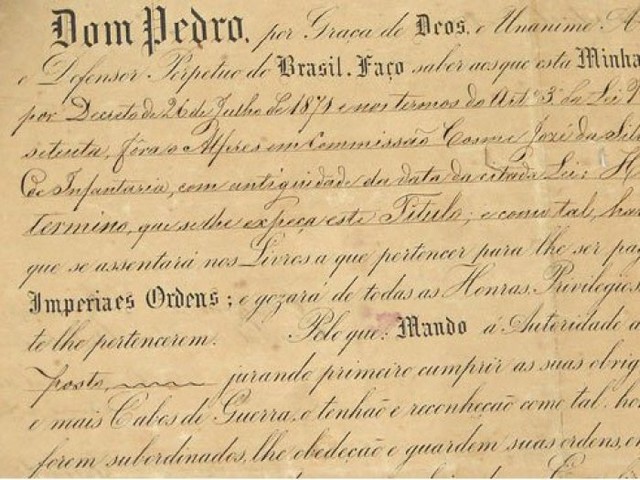 Dom Pedro, por Graça de Deos, e Unanime A
e Defensor Perpetuo do Brasil. Faço saber aos que esta Minha
por Decreto de 26 de Julho de 1871 e nos termos do Artº 3º da Lei
setenta, fôra o Alferes em Commissão Cosme Jozé da Sil
de Infantaria, com antiguidade da data da citada Lei: H
termino, que se lhe expeça este Titulo; e como tal, hav
que se assentará nos Livros a que pertencer para lhe ser pag
Imperiaes Ordens; e gozará de todas as Honras, Privilegios,
te lhe pertencerem. Pelo que: Mando á Autoridade a
posto, jurando primeiro cumprir as suas obrig
e mais Cabos de Guerra, o tenhão e reconheção como tal, ho
forem subordinados, lhe obedeção e guardem suas ordens, e